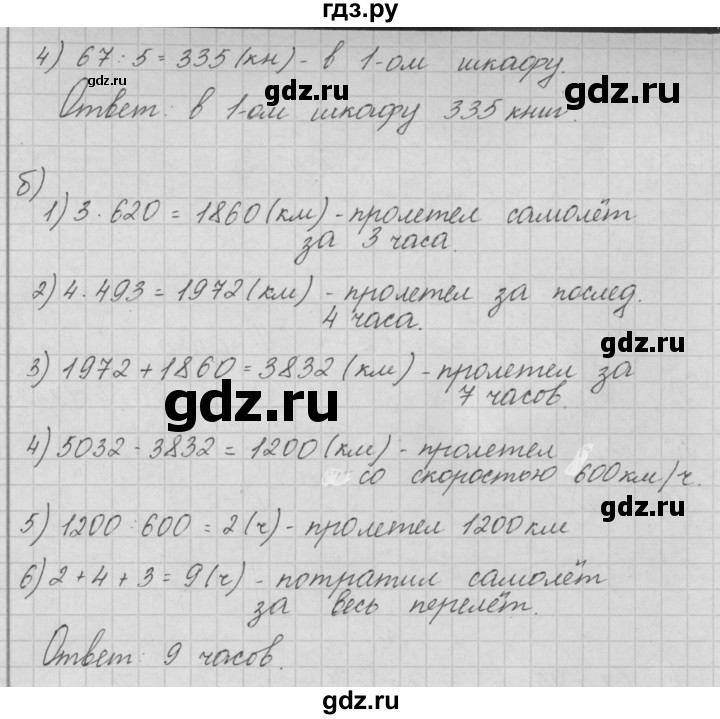 гдз.ру
4) 67 : 5 = 335 (кн) - в 1-ом шкафу.
gdz.ru
gdz.ru
Ответ: в 1-ом шкафу 335 книг.
б)
1) 3 · 620 = 1860 (км) - пролетел самолёт
за 3 часа.
gdz.ru
2) 4 · 493 = 1972 (км) - пролетел за послед.
4 часа.
gdz.ru
3) 1972 + 1860 = 3832 (км) - пролетел за
7 часов.
gdz.ru
4) 5032 - 3832 = 1200 (км) - пролетел
со скоростью 600 км/ч.
gdz.ru
gdz.ru
5) 1200 : 600 = 2 (ч) - пролетел 1200 км
6) 2 + 4 + 3 = 9 (ч) - потратил самолёт
за весь перелёт.
gdz.ru
Ответ: 9 часов.
gdz.ru
gdz.ru